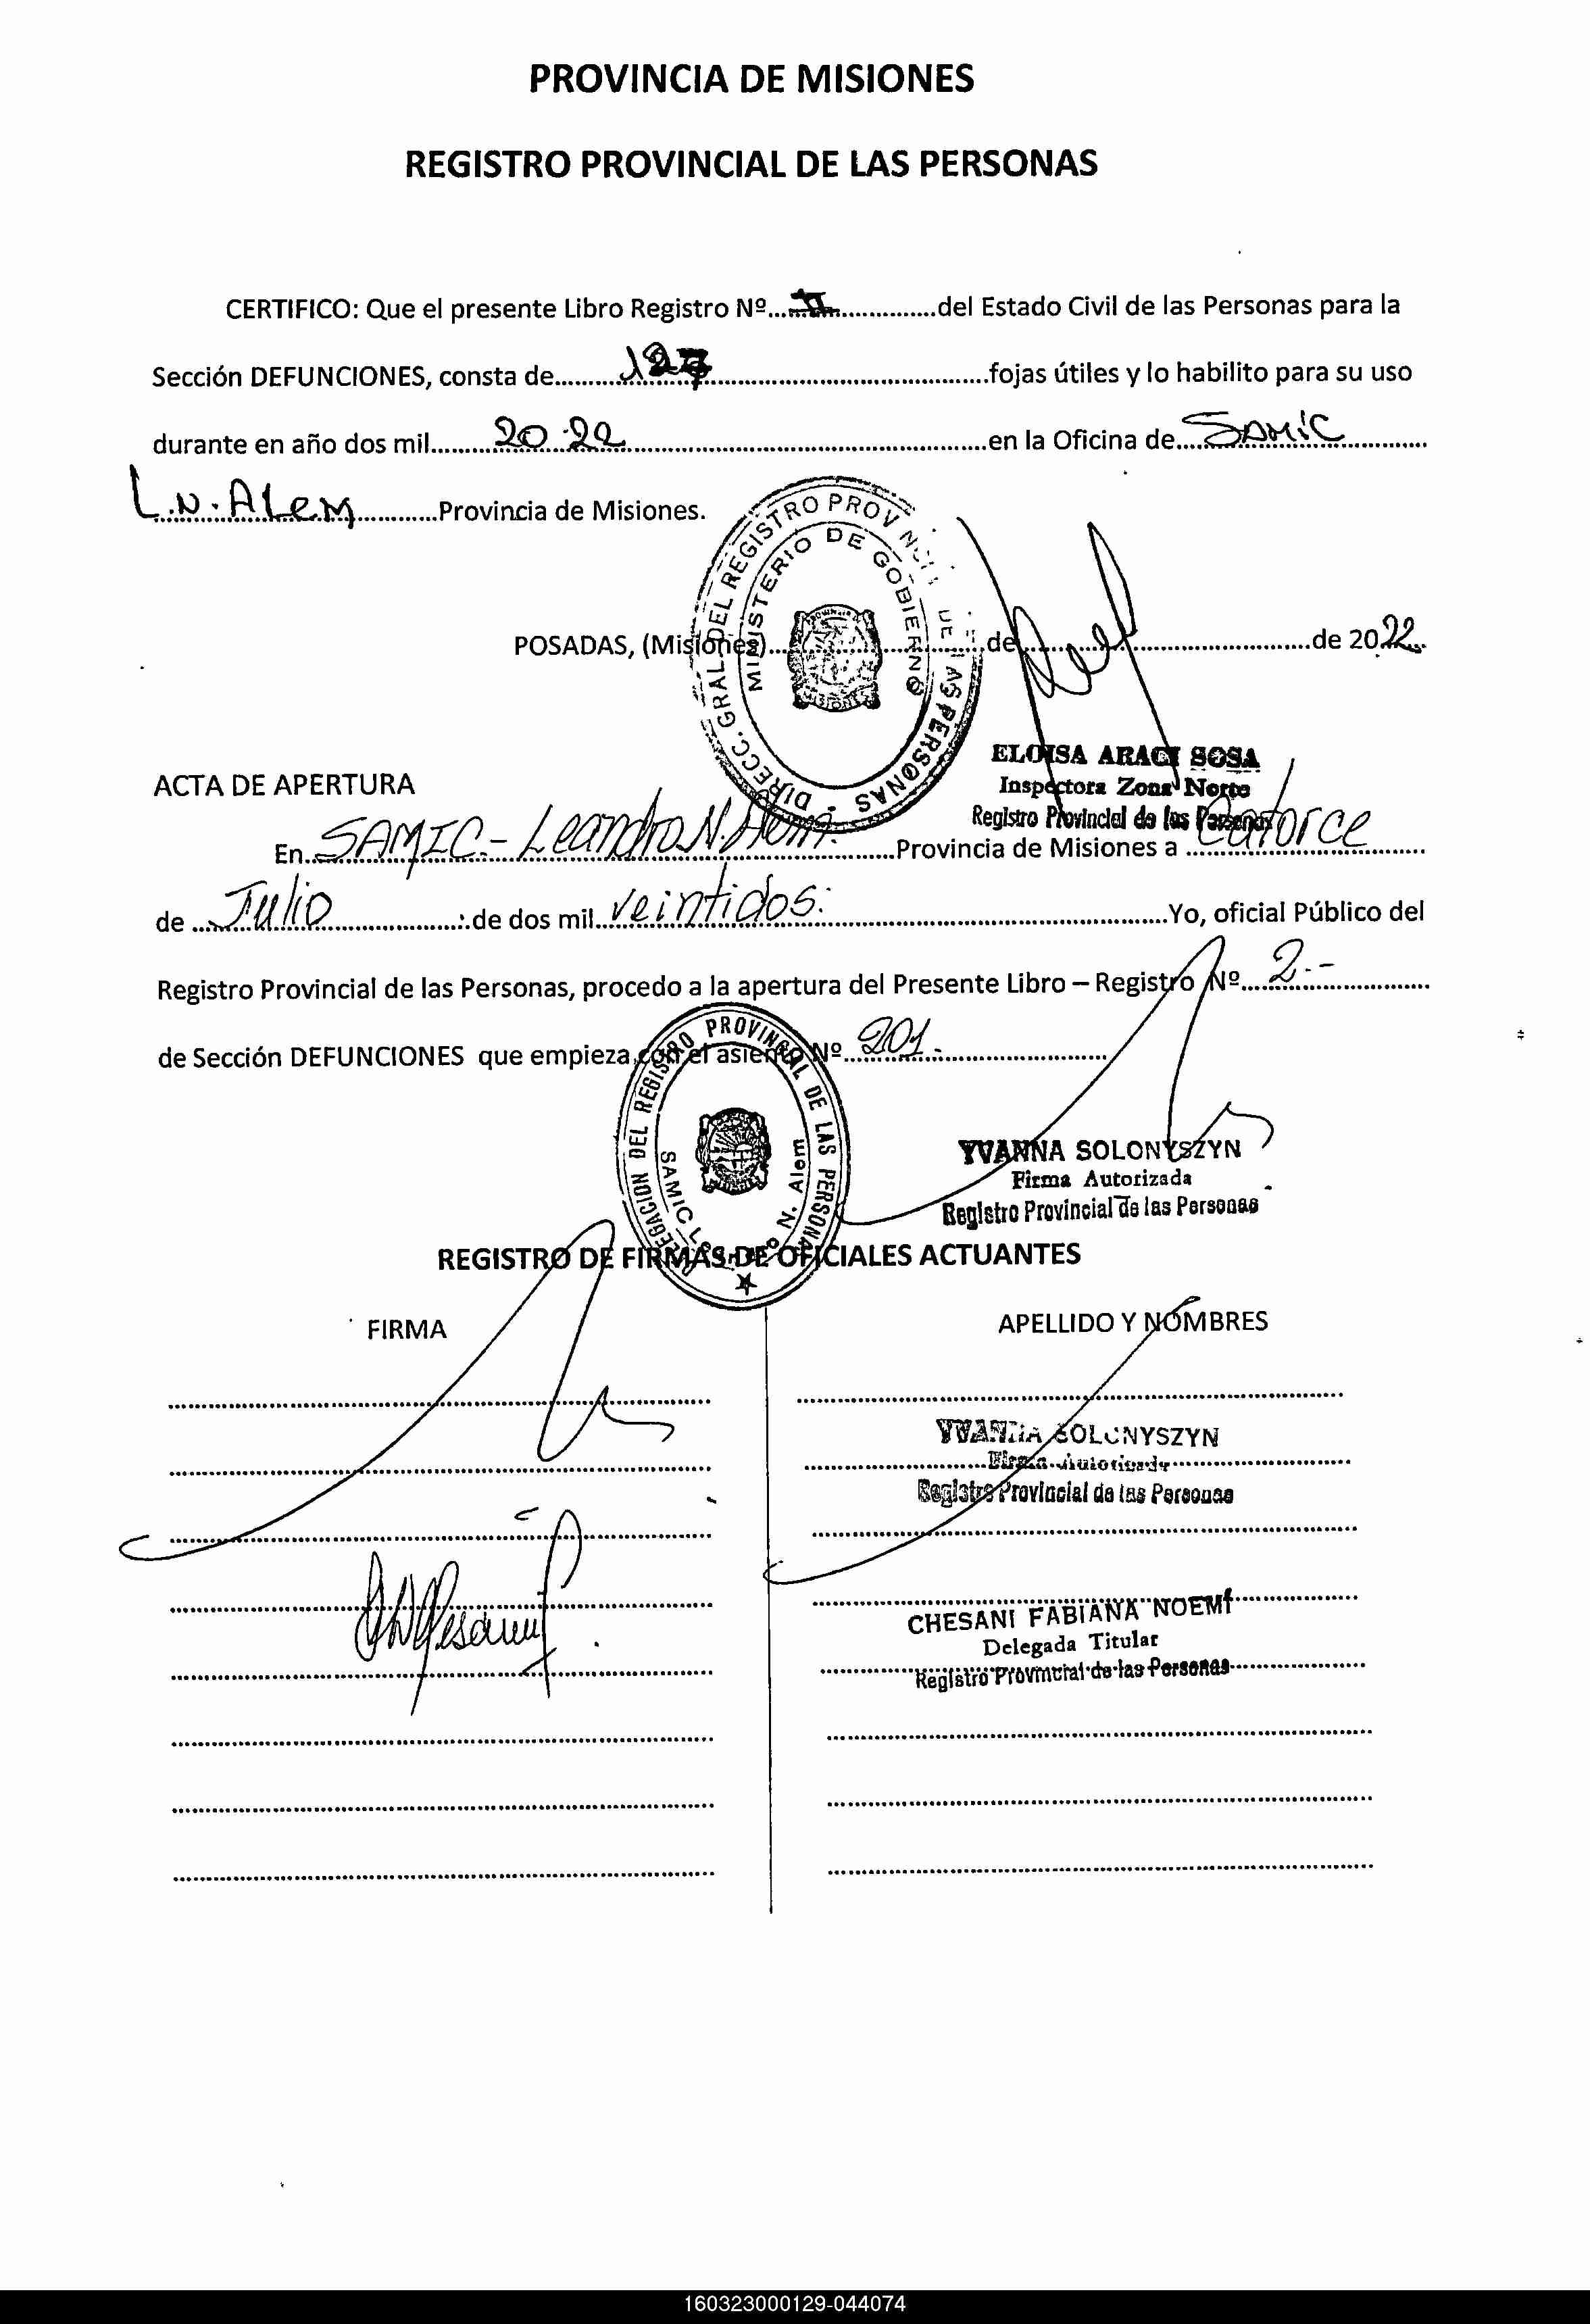 PROVINCIA DE MISIONES
REGISTRO PROVINCIAL DE LAS PERSONAS
CERTIFICO: Que el presente Libro Registro Nº...II..............del Estado Civil de las Personas para la
Sección DEFUNCIONES, consta de..........127..........fojas útiles y lo habilito para su uso
durante en año dos mil.........20.22..........en la Oficina de....SAMIC..........
L.N.ALEM............Provincia de Misiones.
DIRECC. GRAL. DEL REGISTRO PROVINCIAL DE LAS PERSONAS
MINISTERIO DE GOBIERNO
POSADAS, (Misiones)..........de..........de 2022...
ELOISA ARACI SOSA
Inspectora Zona Norte
Registro Provincial de las Personas
ACTA DE APERTURA
En..SAMIC.- Leandro N. Alem...........Provincia de Misiones a ..Catorce..........
de ...Julio..........de dos mil..veintidos...........Yo, oficial Público del
Registro Provincial de las Personas, procedo a la apertura del Presente Libro – Registro Nº....2.-..........
de Sección DEFUNCIONES que empieza con el asiento Nº..201...........
DELEGACION DEL REGISTRO PROVINCIAL DE LAS PERSONAS
SAMIC Leandro N. Alem
YVANNA SOLONYSZYN
Firma Autorizada
Registro Provincial de las Personas
REGISTRO DE FIRMAS DE OFICIALES ACTUANTES
FIRMA
APELLIDO Y NOMBRES
YVANNA SOLONYSZYN
Firma Autorizada
Registro Provincial de las Personas
CHESANI FABIANA NOEMI
Delegada Titular
Registro Provincial de las Personas
160323000129-044074